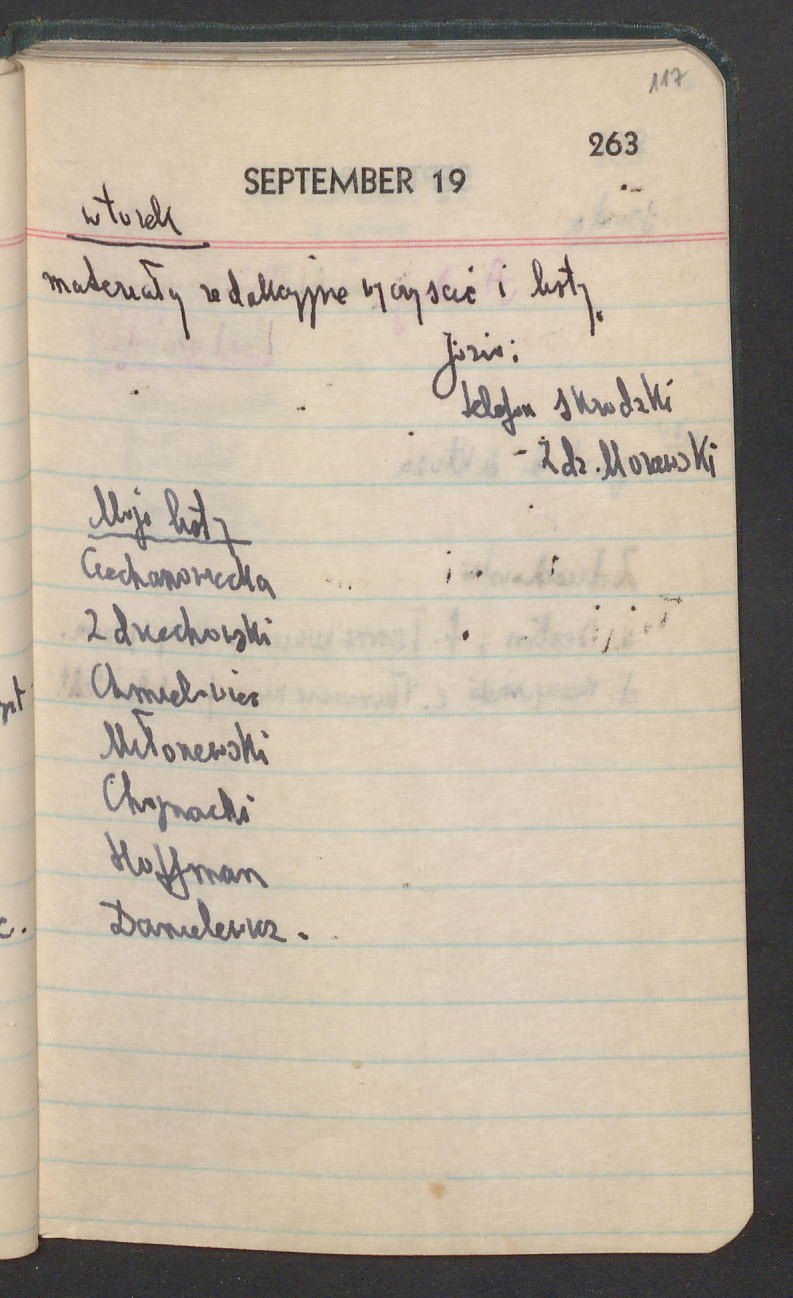 117
263
SEPTEMBER 19
wtorek
materiały redakcyjne wyczyścić i listy.
Józio:
telefon Skrodzki
- Zdz. Morawski
Moje listy
Ciechanowiecka
Zdziechowski
Chmielowiec
Miłoszewski
Chojnacki
Hoffman
Danielewicz.